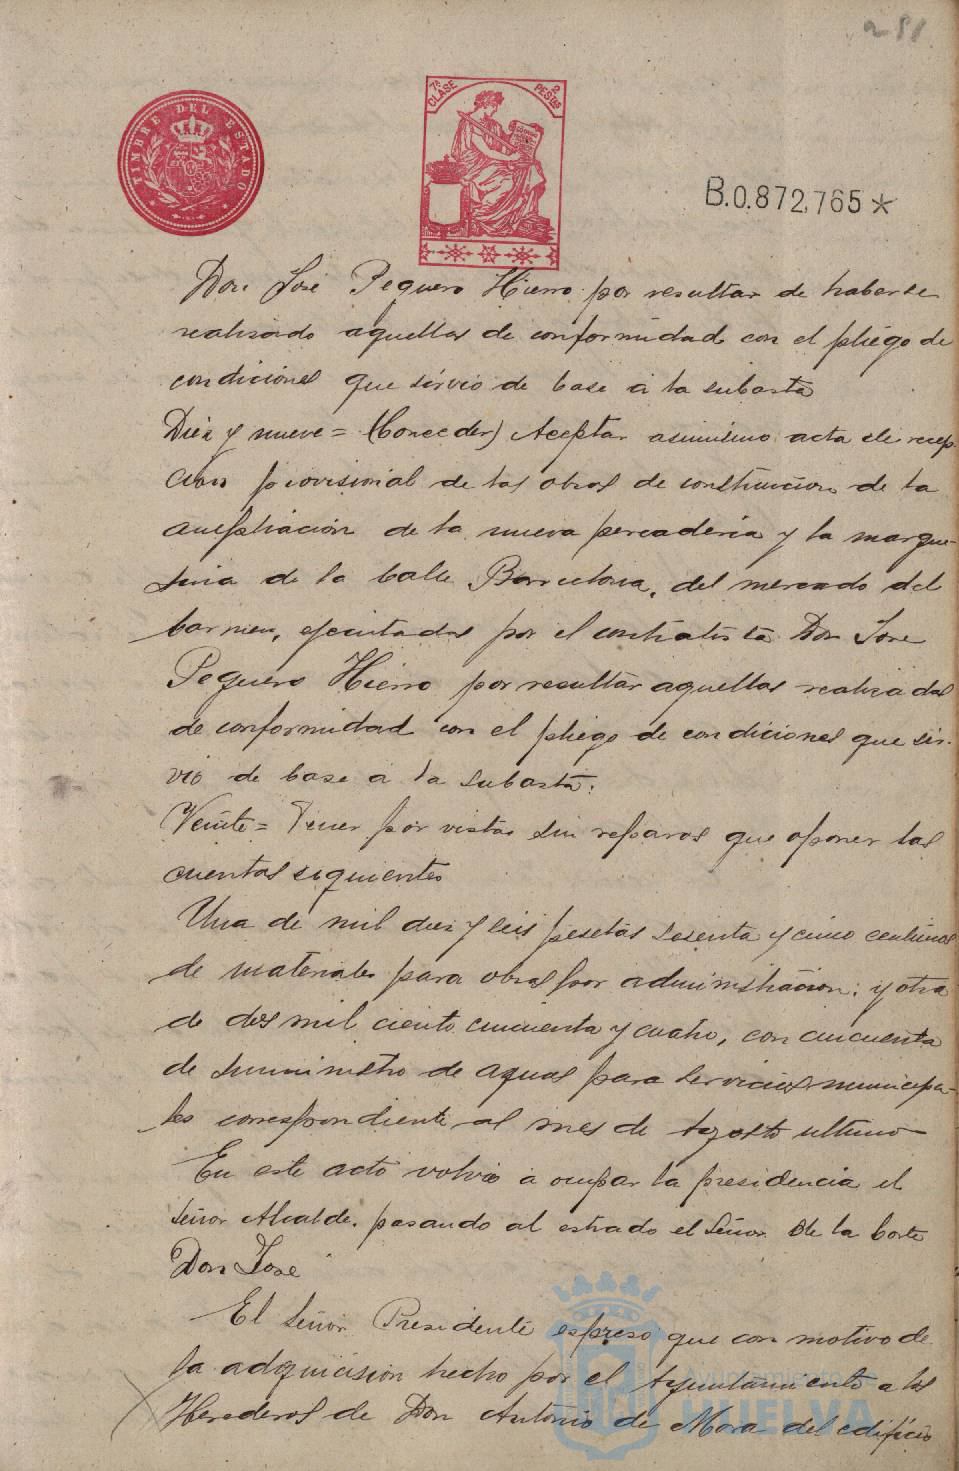 281
TIMBRE DEL ESTADO
7ª CLASE
2 PESETAS
B.0.872,765*
Don José Peguero Hierro por resultar de haberse
realizado aquellas de conformidad con el pliego de
condiciones que sirvió de base a la subasta
Diez y nueve = (Conceder) Aceptar asimismo acta de recep-
ción provisional de las obras de construccion de la
ampliación de la nueva pescaderia y la marque-
sina de la Calle Barcelona, del mercado del
Carmen, ejecutadas por el contratista Don Jose
Peguero Hierro por resultar aquellas realizadas
de conformidad con el pliego de condiciones que sir-
vió de base a la subasta.
Veinte = Tener por vistas sin reparos que oponer las
cuentas siguientes
Una de mil diez y seis pesetas sesenta y cinco centimos
de materiales para obras por administracion: y otra
de dos mil ciento cincuenta y cuatro, con cincuenta
de suministro de aguas para servicios municipa-
les correspondiente al mes de Agosto ultimo
En este acto volvió a ocupar la presidencia el
Señor Alcalde. pasando al estrado el Señor de la Corte
Don José
El Señor Presidente espresó que con motivo de
la adquicision hecho por el Ayuntamiento a los
Herederos de Don Antonio de Mora del edificio
Ayuntamiento
HUELVA